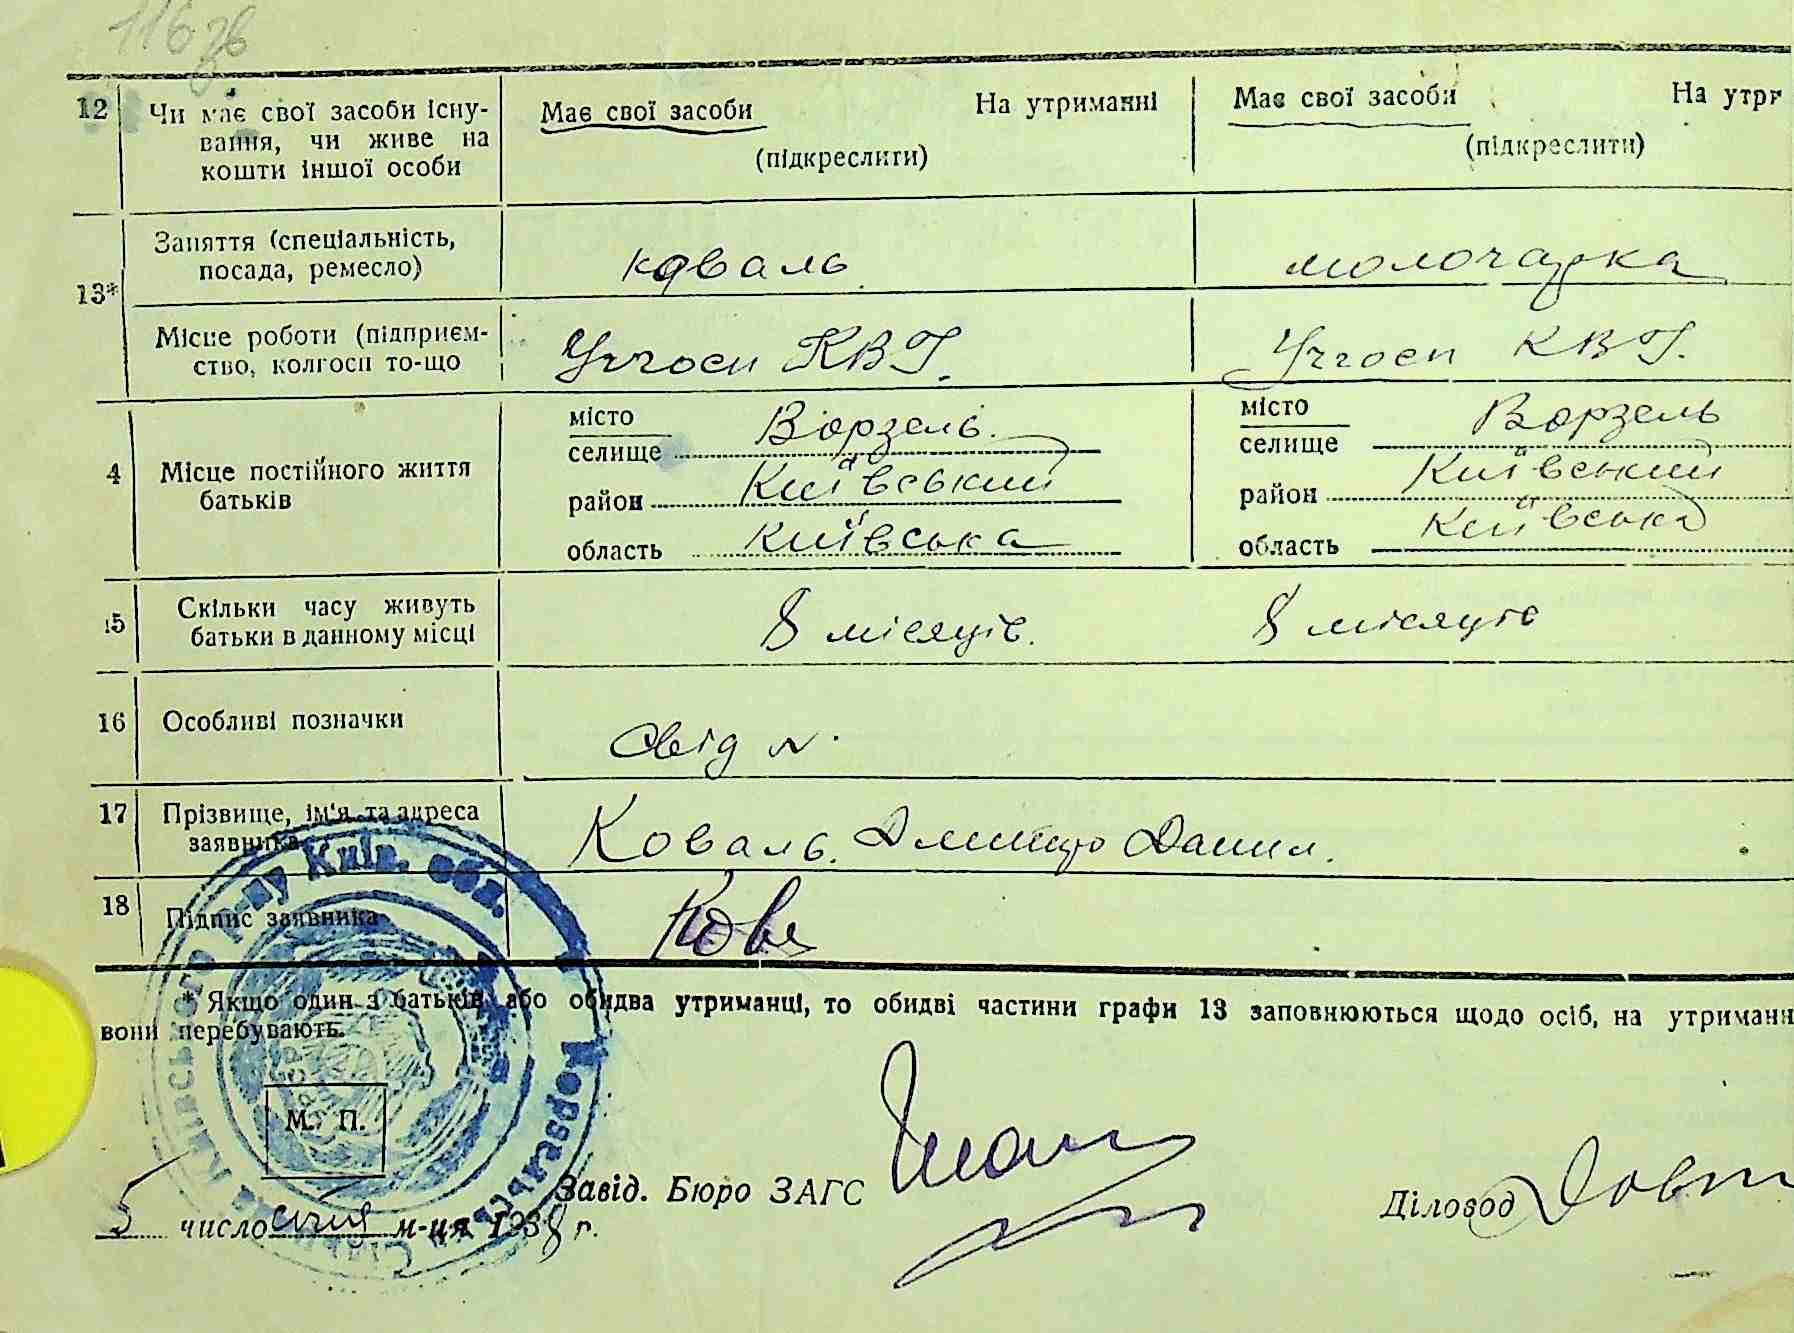 116 зв
12 Чи має свої засоби існу-
вання, чи живе на
кошти іншої особи
Має свої засоби На утриманні
(підкреслити)
Має свої засоби На утри
(підкреслити)
13*
Заняття (спеціальність,
посада, ремесло)
коваль
молочарка
Місце роботи (підприєм-
ство, колгосп то-що
Учгосп КВІ.
Учгосп КВІ.
4 Місце постійного життя
батьків
місто
селище Ворзель.
район Київський
область Київська
місто
селище Ворзель
район Київський
область Київська
15 Скільки часу живуть
батьки в данному місці
8 місяців.
8 місяців
16 Особливі позначки
Свід №.
17 Прізвище, ім'я та адреса
заявника
Коваль. Дмитро Данил.
18 Підпис заявника
Кова
* Якщо один з батьків або обидва утриманці, то обидві частини графи 13 заповнюються щодо осіб, на утриманн
вони перебувають.
М. П.
Завід. Бюро ЗАГС
Діловод
5 число січня м-ця 1938 г.
Ворзельська Селищна Київського р-ну Київ. обл.